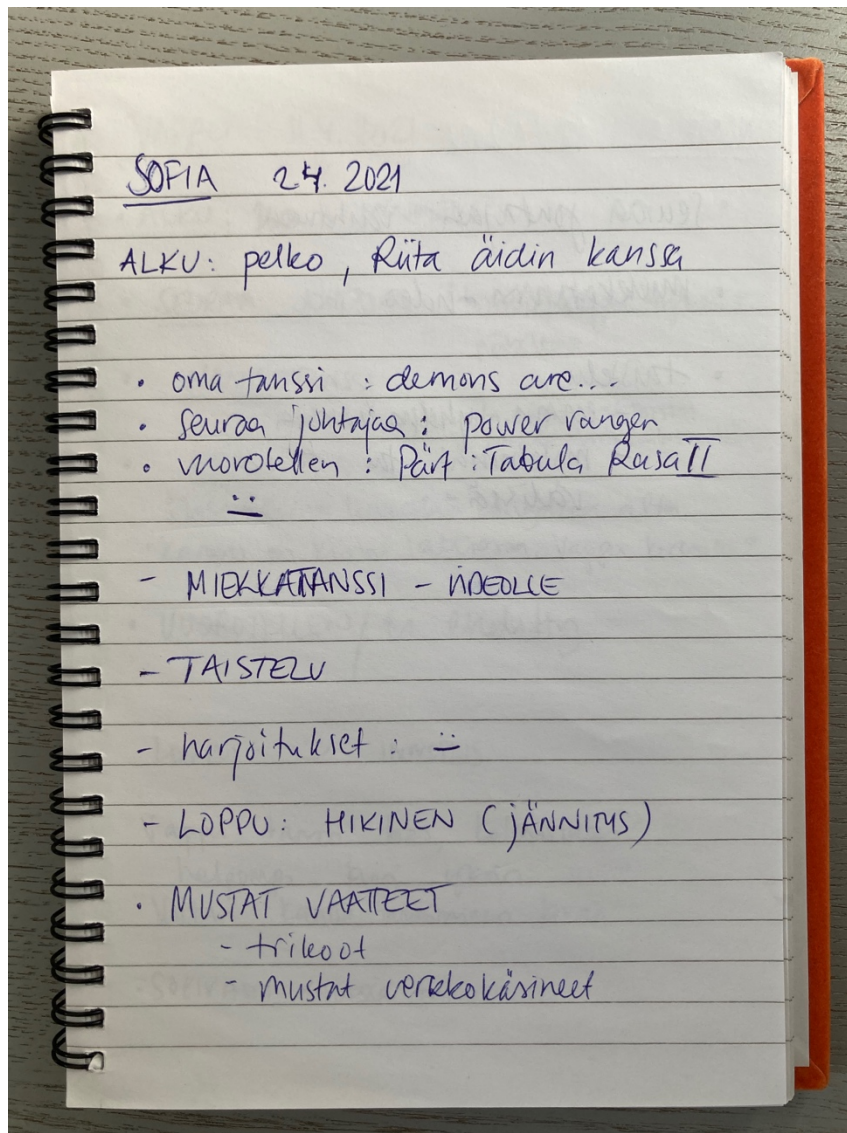 SOFIA 24. 2021
ALKU: pelko, Riita äidin kanssa
• oma tanssi : demons are...
• seuraa johtajaa : power ranger
• vuorotellen : Pärt : Tabula Rasa II
- MIEKKATANSSI - VIDEOLLE
- TAISTELU
- harjoitukset :
- LOPPU: HIKINEN (JÄNNITYS)
• MUSTAT VAATTEET
- trikoot
- mustat verkkokäsineet